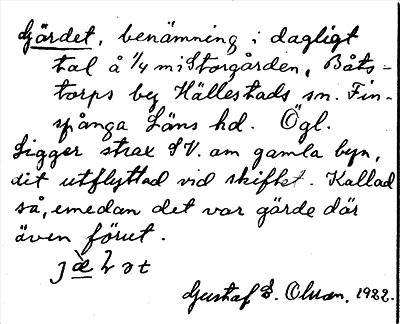 Gärdet, benämning i dagligt
tal å 1/4 mi Storgården, Båts-
torps by Hällestads sn. Fin-
spånga Läns hd. Ögl.
Ligger strax S V. om gamla byn,
dit utflyttad vid skiftet. Kallad
så, emedan det var gärde där
även förut.
Gustaf E. Olsson, 1922.